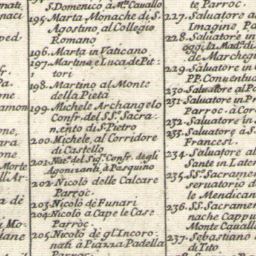 S. Domenico à Mte. Cauallo
195. Marta Monache di S.
Agostino, al Collegio
Romano
196. Marta in Vaticano
197. Martina, e Luca de Pit-
tori
198. Martino al Monte
della Pietà
199. Michele Archangelo
Confr. del SS. Sacra-
mento di S. Pietro
200. Michele, al Corridore
di Castello
201. Natà. del Sigre. Confr. degli
Agonizanti, à Pasquino
202. Nicolò delle Calcare
Parroc.
203. Nicolò de Funari
204. Nicolò a Capo le Case
Parroc.
205. Nicolò de gl'Incoro-
nati à Piazza Padella
te Parroc.
227. Saluatore
Imagine, P
228. Saluatore in
oggi la Madª di
de Marcheg
229. Saluatore in
PP. Conuentua
230. Saluatore al Po
231. Saluatore in Pr
Parroc. à Cor
232. Saluatore in
233. Saluatore à S.
Francesi.
234. Saluatore al
Sante in Later
235. SS. Sacramen
seruatorio d
le Mendican
236. SS. Sacramen
nache Cappu
Monte Cauallo
237. Sebastiano
di Tito